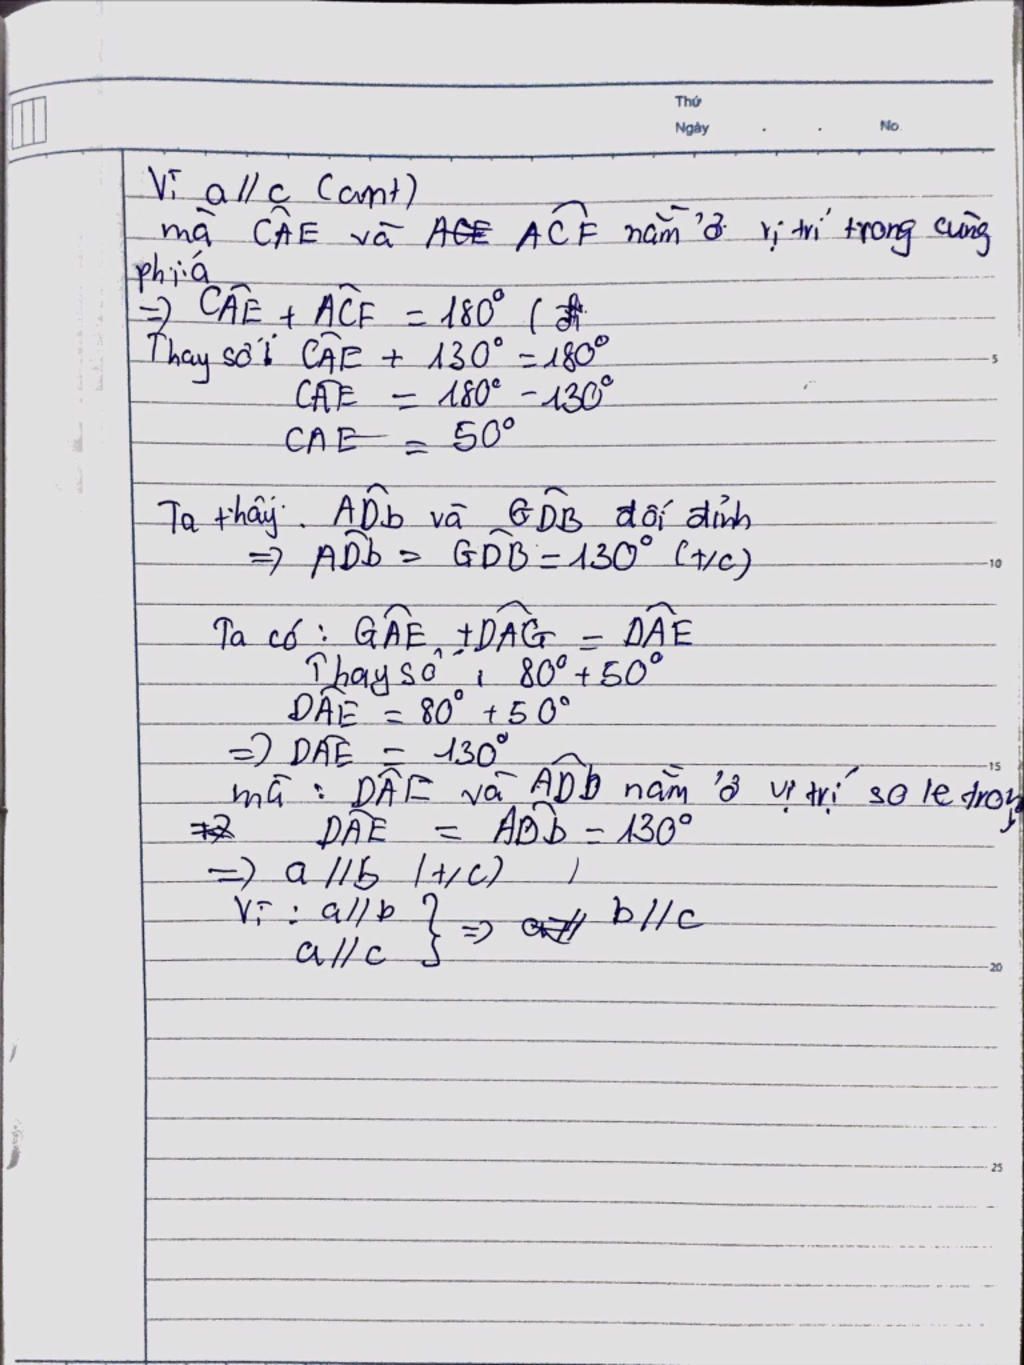 Thứ
Ngày . . No.
Vì a // c (cmt)
mà CÂE và ACE AĈF nằm ở vị trí trong cùng
phía
=> CÂE + AĈF = 180° (
Thay số: CÂE + 130° = 180° 5
CÂE = 180° - 130°
CAE = 50°
Ta thấy. AD̂b và GD̂B đối đỉnh
=> AD̂b = GD̂B = 130° (t/c) 10
Ta có: GÂE + DÂG = DÂE
Thay số: 80° + 50°
DÂE = 80° + 50°
=> DÂE = 130° 15
mà: DÂE và AD̂b nằm ở vị trí so le trong
=> DÂE = AD̂b = 130°
=> a // b (t/c)
Vì: a // b } => b // c
a // c 20
25